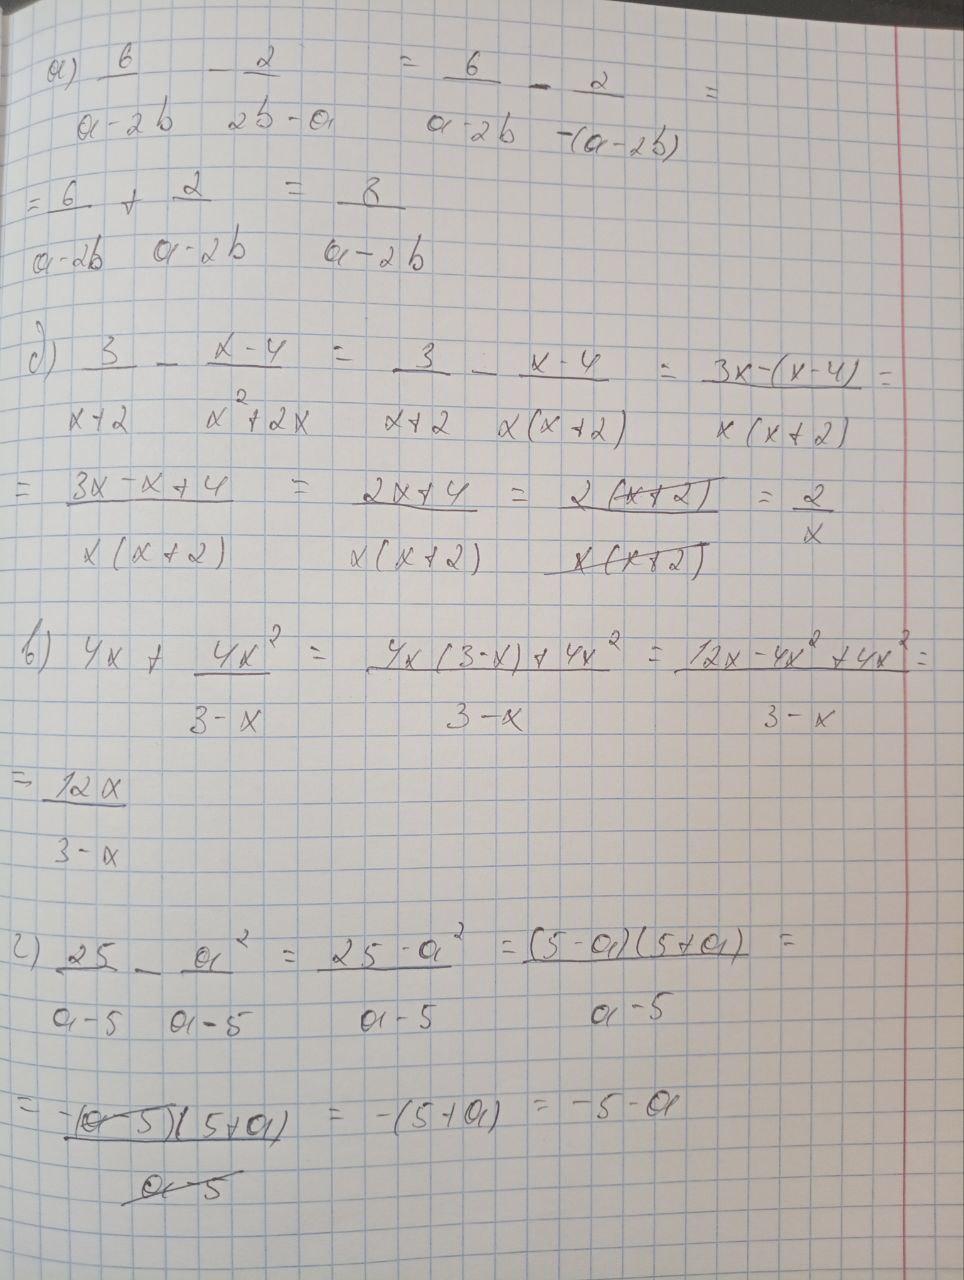 а) 6/(a-2b) - 2/(2b-a) = 6/(a-2b) - 2/(-(a-2b)) =
= 6/(a-2b) + 2/(a-2b) = 8/(a-2b)
д) 3/(x+2) - (x-4)/(x²+2x) = 3/(x+2) - (x-4)/(x(x+2)) = (3x-(x-4))/(x(x+2)) =
= (3x-x+4)/(x(x+2)) = (2x+4)/(x(x+2)) = 2(x+2)/(x(x+2)) = 2/x
в) 4x + 4x²/(3-x) = (4x(3-x)+4x²)/(3-x) = (12x-4x²+4x²)/(3-x) =
= 12x/(3-x)
г) 25/(a-5) - a²/(a-5) = (25-a²)/(a-5) = (5-a)(5+a)/(a-5) =
= -(a-5)(5+a)/(a-5) = -(5+a) = -5-a